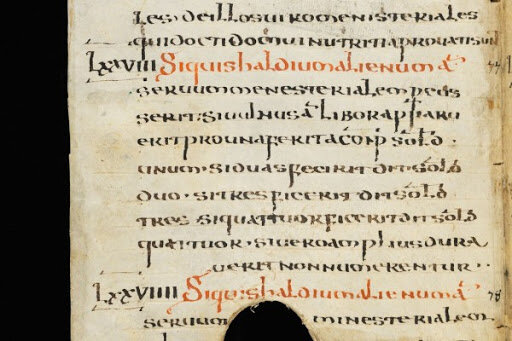 les · de illos uiro menesteriales
qui docti domui nutriti aprouati sun
LXXVIII Siquis haldium alienum a
seruum menesterialem percus
serit · si uulnus a libor apparu
erit pro una ferita conp sold
unum · si duas fecerit det sold
duo · si tres fecerit det sold
tres si quattuor fecerit det sold
quattuor · si uero amplius dura
uerit non numerentur ·
LXXVIIII Siquis haldium alienum a
seruum menesterialem